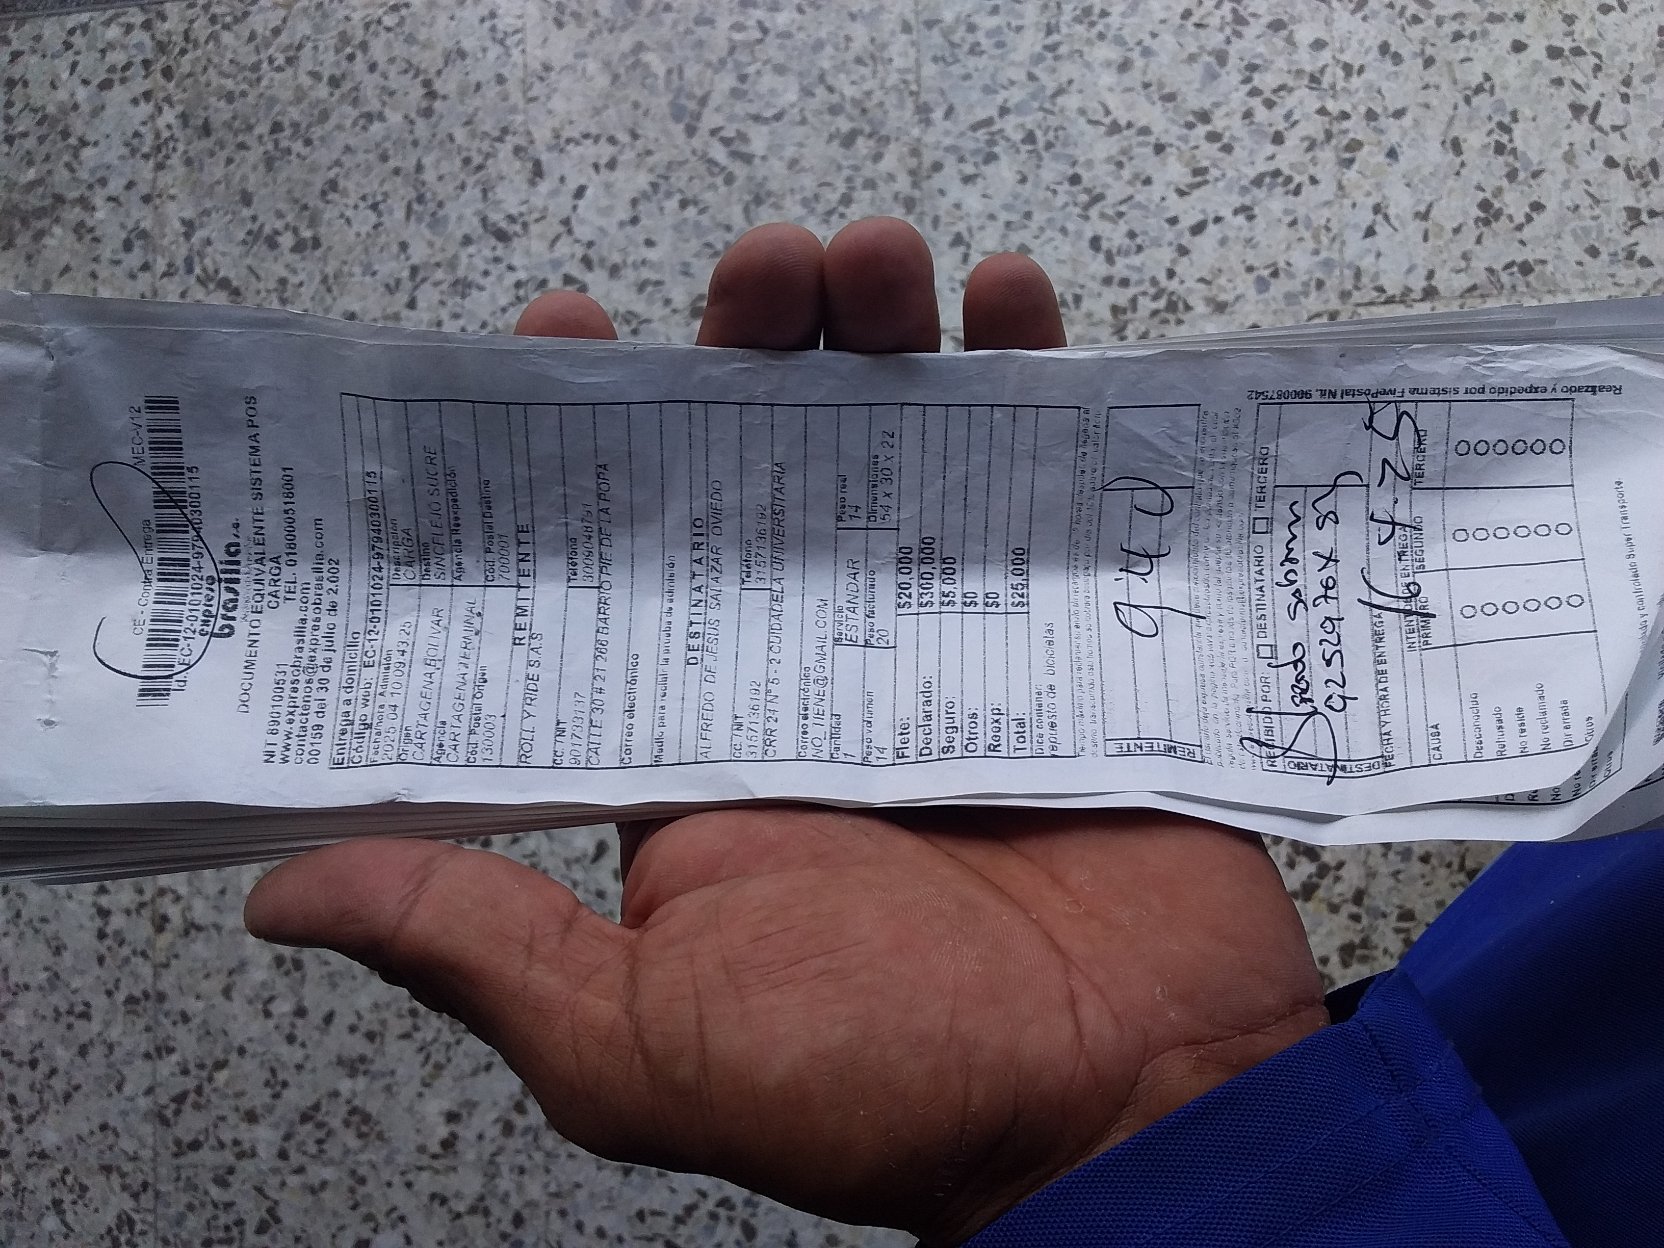 CE - Contra Entrega
MEC-V12
Id. EC-12-0101024-97940300115
expreso
brasilia s.a.
DOCUMENTO EQUIVALENTE SISTEMA POS
CARGA
NIT 890100531 TEL. 018000518001
www.expresobrasilia.com
contactenos@expresobrasilia.com
00159 del 30 de julio de 2.002
Entrega a domicilio
Código web: EC-12-0101024-97940300115
Fecha hora Admisión Descripción
2025 04 10 09:43:25 CARGA
Origen Destino
CARTAGENA BOLIVAR SINCELEJO SUCRE
Agencia Agencia Reexpedición
CARTAGENA TERMINAL
Cod. Postal Origen Cod. Postal Destino
130003 700001
REMITENTE
ROLLYRIDE S.A.S
CC. / NIT Teléfono
901733137
BARRIO PIE DE LA POPA
Correo electrónico
Medio para recibir la prueba de admisión
DESTINATARIO
ALFREDO DE JESUS SALAZAR OVIEDO
CC. / NIT Teléfono
3157136192 3157136192
CRR 24 N° 5 - 2 CUIDADELA UNIVERSITARIA
Correo electrónico
NO_TIENE@GMAIL.COM
Cantidad Servicio Peso real
1 ESTANDAR 14
Peso volumen Peso facturado Dimensiones
14 20 54 X 30 X 22
Flete: $20,000
Declarado: $300,000
Seguro: $5,000
Otros: $0
Reexp: $0
Total: $25,000
Dice contener:
repuesto de bicicletas
REMITENTE
9:40
RECIBIDO POR: DESTINATARIO TERCERO
DESTINATARIO
FECHA Y HORA DE ENTREGA 16 4 25
INTENTO DE ENTREGA
CAUSA PRIMERO SEGUNDO TERCERO
Desconocido
Rehusado
No reside
No reclamado
Dir. errada
Otros
Realizado y expedido por sistema FivePostal Nit. 900087542
y controlado SuperTransporte